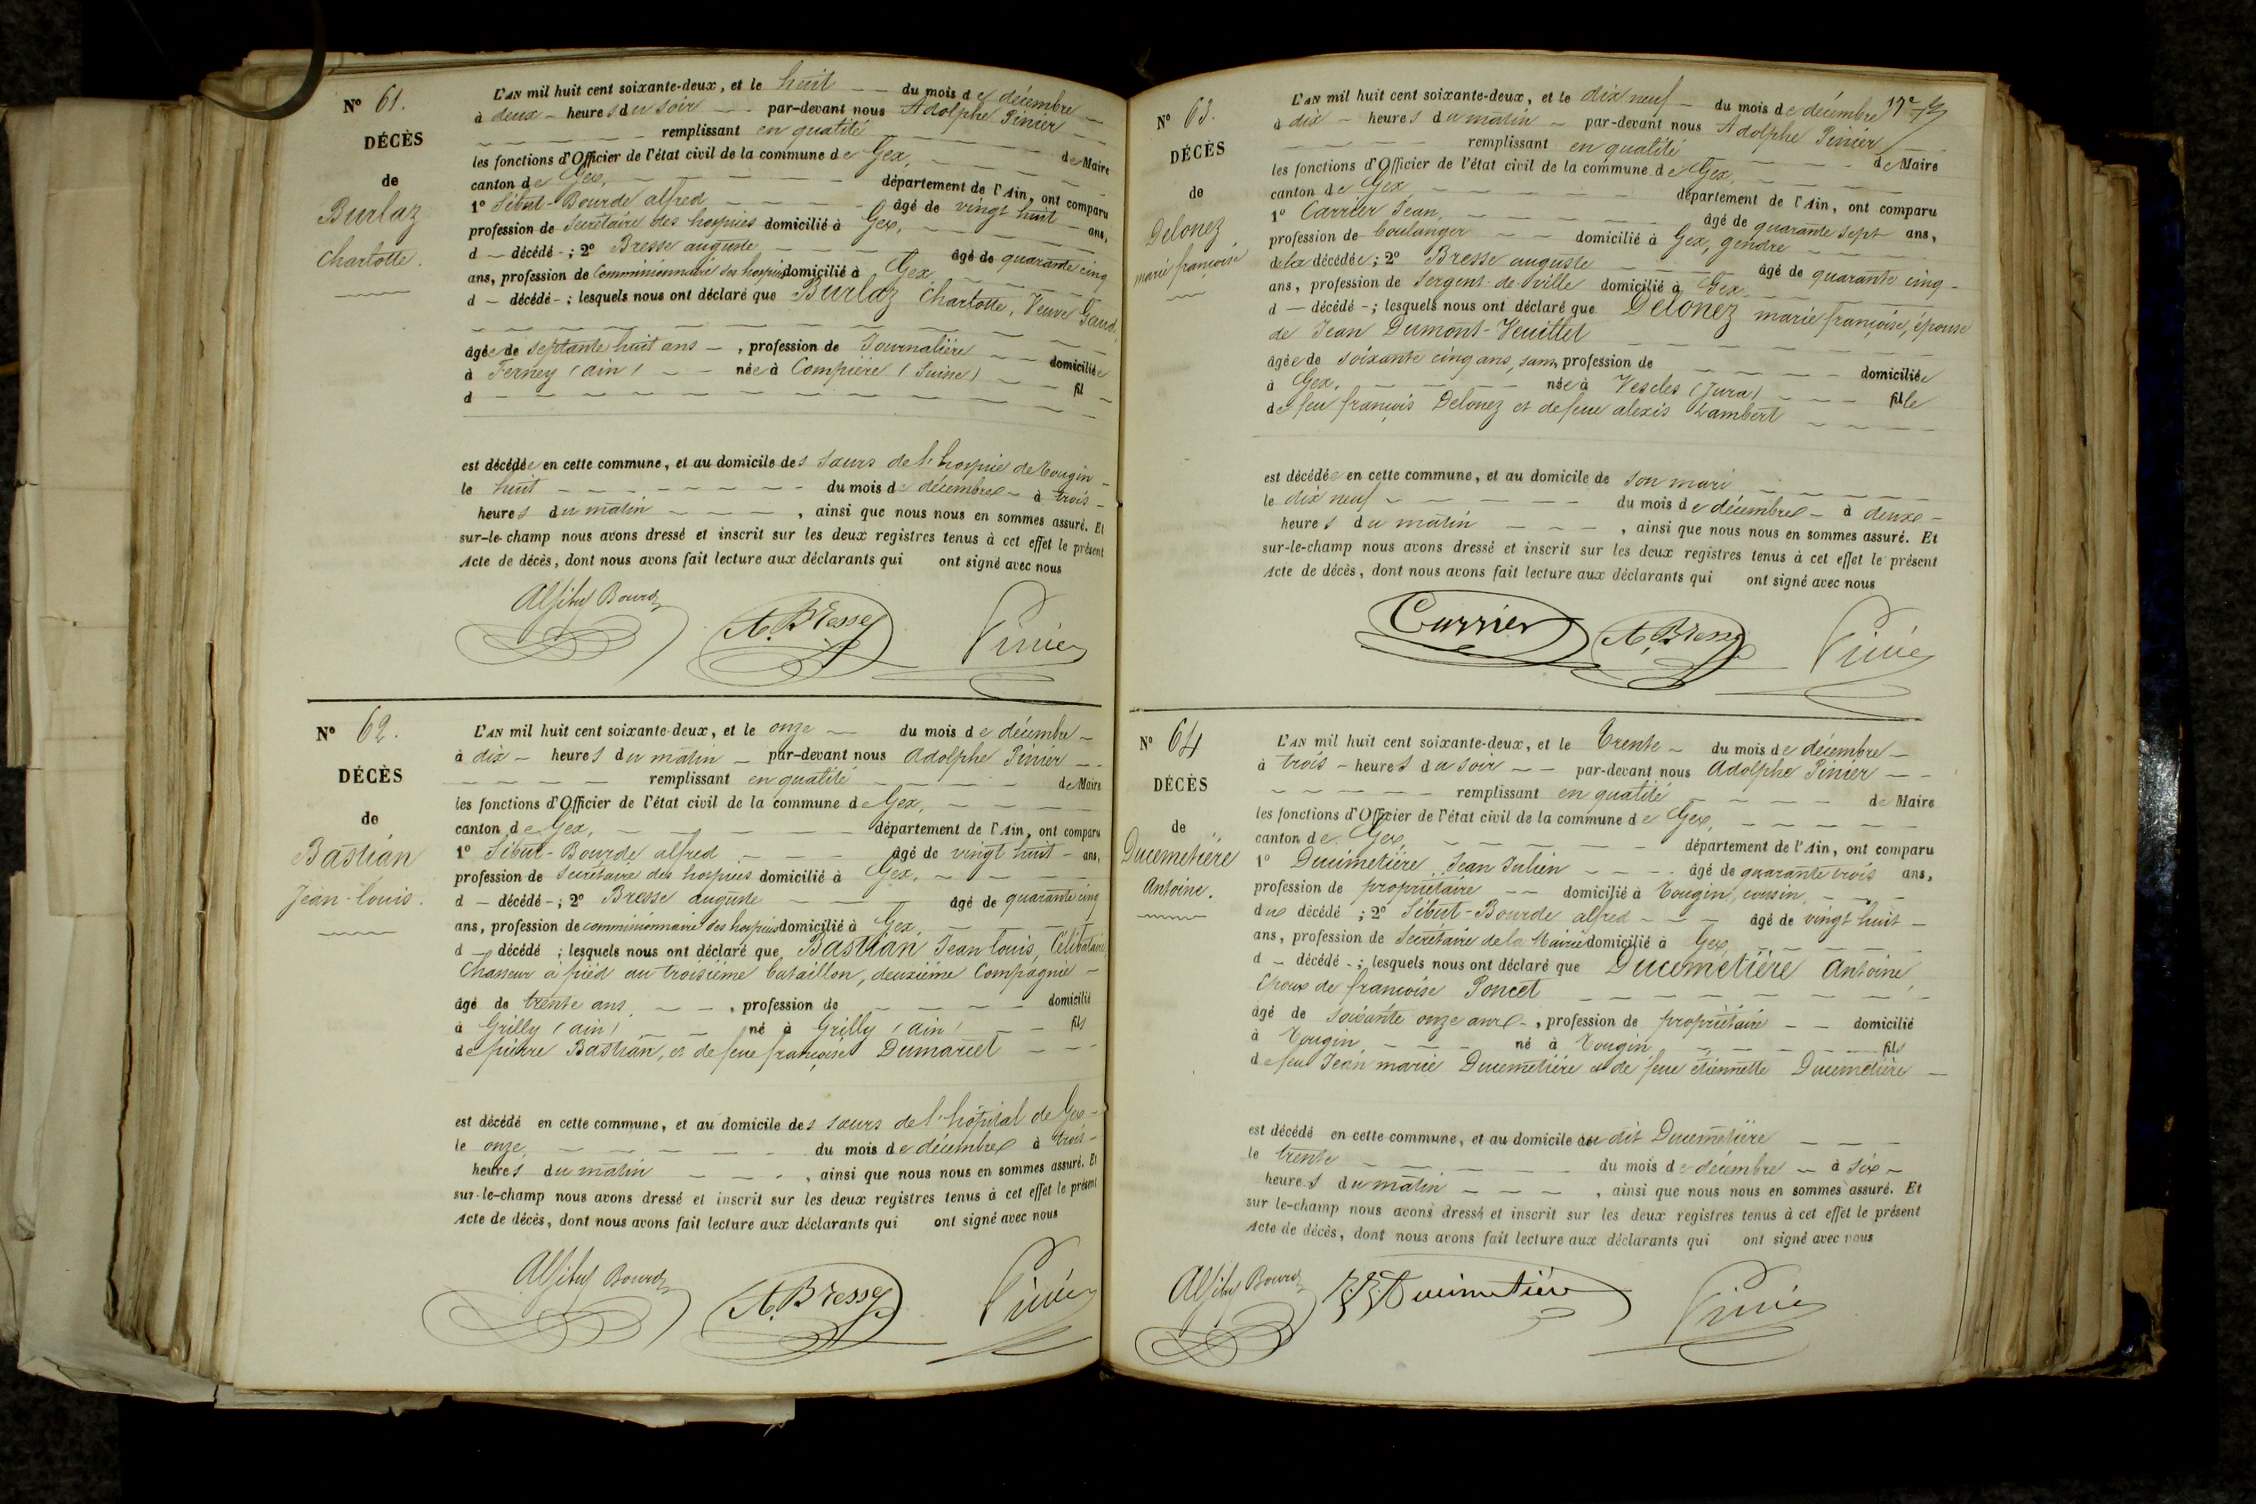 N° 61.
DÉCÈS
de
Burlaz
Charlotte.
L'AN mil huit cent soixante-deux, et le huit du mois de décembre
à deux heures du soir par-devant nous Adolphe Pinier
remplissant en qualité de Maire
les fonctions d'Officier de l'état civil de la commune de Gex,
canton de Gex, département de l'Ain, ont comparu
1° Sibut-Bourde alfred âgé de vingt huit ans,
profession de Secrétaire des hospices domicilié à Gex,
d décédé ; 2° Bresse auguste âgé de quarante cinq
ans, profession de Commissionnaire des hospices domicilié à Gex
d décédé ; lesquels nous ont déclaré que Burlaz Charlotte, Veuve Gaud,
âgée de septante huit ans , profession de Journalière domiciliée
à Ferney (ain) née à Compière (Suisse) fil
d
est décédée en cette commune, et au domicile des sœurs de l'hospice de Tougin
le huit du mois de décembre à trois
heures du matin , ainsi que nous nous en sommes assuré. Et
sur-le-champ nous avons dressé et inscrit sur les deux registres tenus à cet effet le présent
Acte de décès, dont nous avons fait lecture aux déclarants qui ont signé avec nous
A Sibut Bourde A. Bresse Pinier
N° 62.
DÉCÈS
de
Bastian
Jean-louis.
L'AN mil huit cent soixante-deux, et le onze du mois de décembre
à dix heures du matin par-devant nous Adolphe Pinier
remplissant en qualité de Maire
les fonctions d'Officier de l'état civil de la commune de Gex,
canton de Gex, département de l'Ain, ont comparu
1° Sibut-Bourde alfred âgé de vingt huit ans,
profession de Secrétaire des hospices domicilié à Gex,
d décédé ; 2° Bresse auguste âgé de quarante cinq
ans, profession de commissionnaire des hospices domicilié à Gex,
d décédé ; lesquels nous ont déclaré que Bastian Jean louis, Célibataire
Chasseur à pied au troisième bataillon, deuxième Compagnie
âgé de trente ans , profession de domicilié
à Grilly (ain) né à Grilly (ain) fils
de pierre Bastian, et de feue françoise Dumaret
est décédé en cette commune, et au domicile des sœurs de l'hôpital de Gex
le onze du mois de décembre à trois
heures du matin , ainsi que nous nous en sommes assuré. Et
sur-le-champ nous avons dressé et inscrit sur les deux registres tenus à cet effet le présent
Acte de décès, dont nous avons fait lecture aux déclarants qui ont signé avec nous
A Sibut Bourde A. Bresse Pinier
N° 63.
DÉCÈS
de
Delonez
marie françoise
L'AN mil huit cent soixante-deux, et le dix neuf du mois de décembre
à dix heures du matin par-devant nous Adolphe Pinier
remplissant en qualité de Maire
les fonctions d'Officier de l'état civil de la commune de Gex,
canton de Gex département de l'Ain, ont comparu
1° Carrier Jean, âgé de quarante sept ans,
profession de boulanger domicilié à Gex, gendre
de la décédée ; 2° Bresse auguste âgé de quarante cinq
ans, profession de sergent-de-ville domicilié à Gex
d décédé ; lesquels nous ont déclaré que Delonez marie françoise, épouse
de Jean Dumont-Veuillet
âgée de soixante cinq ans, sans profession de domiciliée
à Gex, née à Vescles (Jura) fille
de feu françois Delonez et de feue alexis Lambert
est décédée en cette commune, et au domicile de son mari
le dix neuf du mois de décembre à deux
heures du matin , ainsi que nous nous en sommes assuré. Et
sur-le-champ nous avons dressé et inscrit sur les deux registres tenus à cet effet le présent
Acte de décès, dont nous avons fait lecture aux déclarants qui ont signé avec nous
Carrier A. Bresse Pinier
N° 64
DÉCÈS
de
Ducimetière
Antoine.
L'AN mil huit cent soixante-deux, et le trente du mois de décembre
à trois heures du soir par-devant nous Adolphe Pinier
remplissant en qualité de Maire
les fonctions d'Officier de l'état civil de la commune de Gex,
canton de Gex, département de l'Ain, ont comparu
1° Ducimetière Jean Julien âgé de quarante trois ans,
profession de propriétaire domicilié à Tougin, cousin
du décédé ; 2° Sibut-Bourde alfred âgé de vingt huit
ans, profession de Secrétaire de la Mairie domicilié à Gex
d décédé ; lesquels nous ont déclaré que Ducimetière Antoine,
époux de françoise Poncet
âgé de soixante onze ans , profession de propriétaire domicilié
à Tougin né à Tougin fils
de feu Jean marie Ducimetière et de feue étiennette Ducimetière
est décédé en cette commune, et au domicile du dit Ducimetière
le trente du mois de décembre à six
heures du matin , ainsi que nous nous en sommes assuré. Et
sur le-champ nous avons dressé et inscrit sur les deux registres tenus à cet effet le présent
Acte de décès, dont nous avons fait lecture aux déclarants qui ont signé avec nous
A Sibut Bourde J. J. Ducimetière Pinier